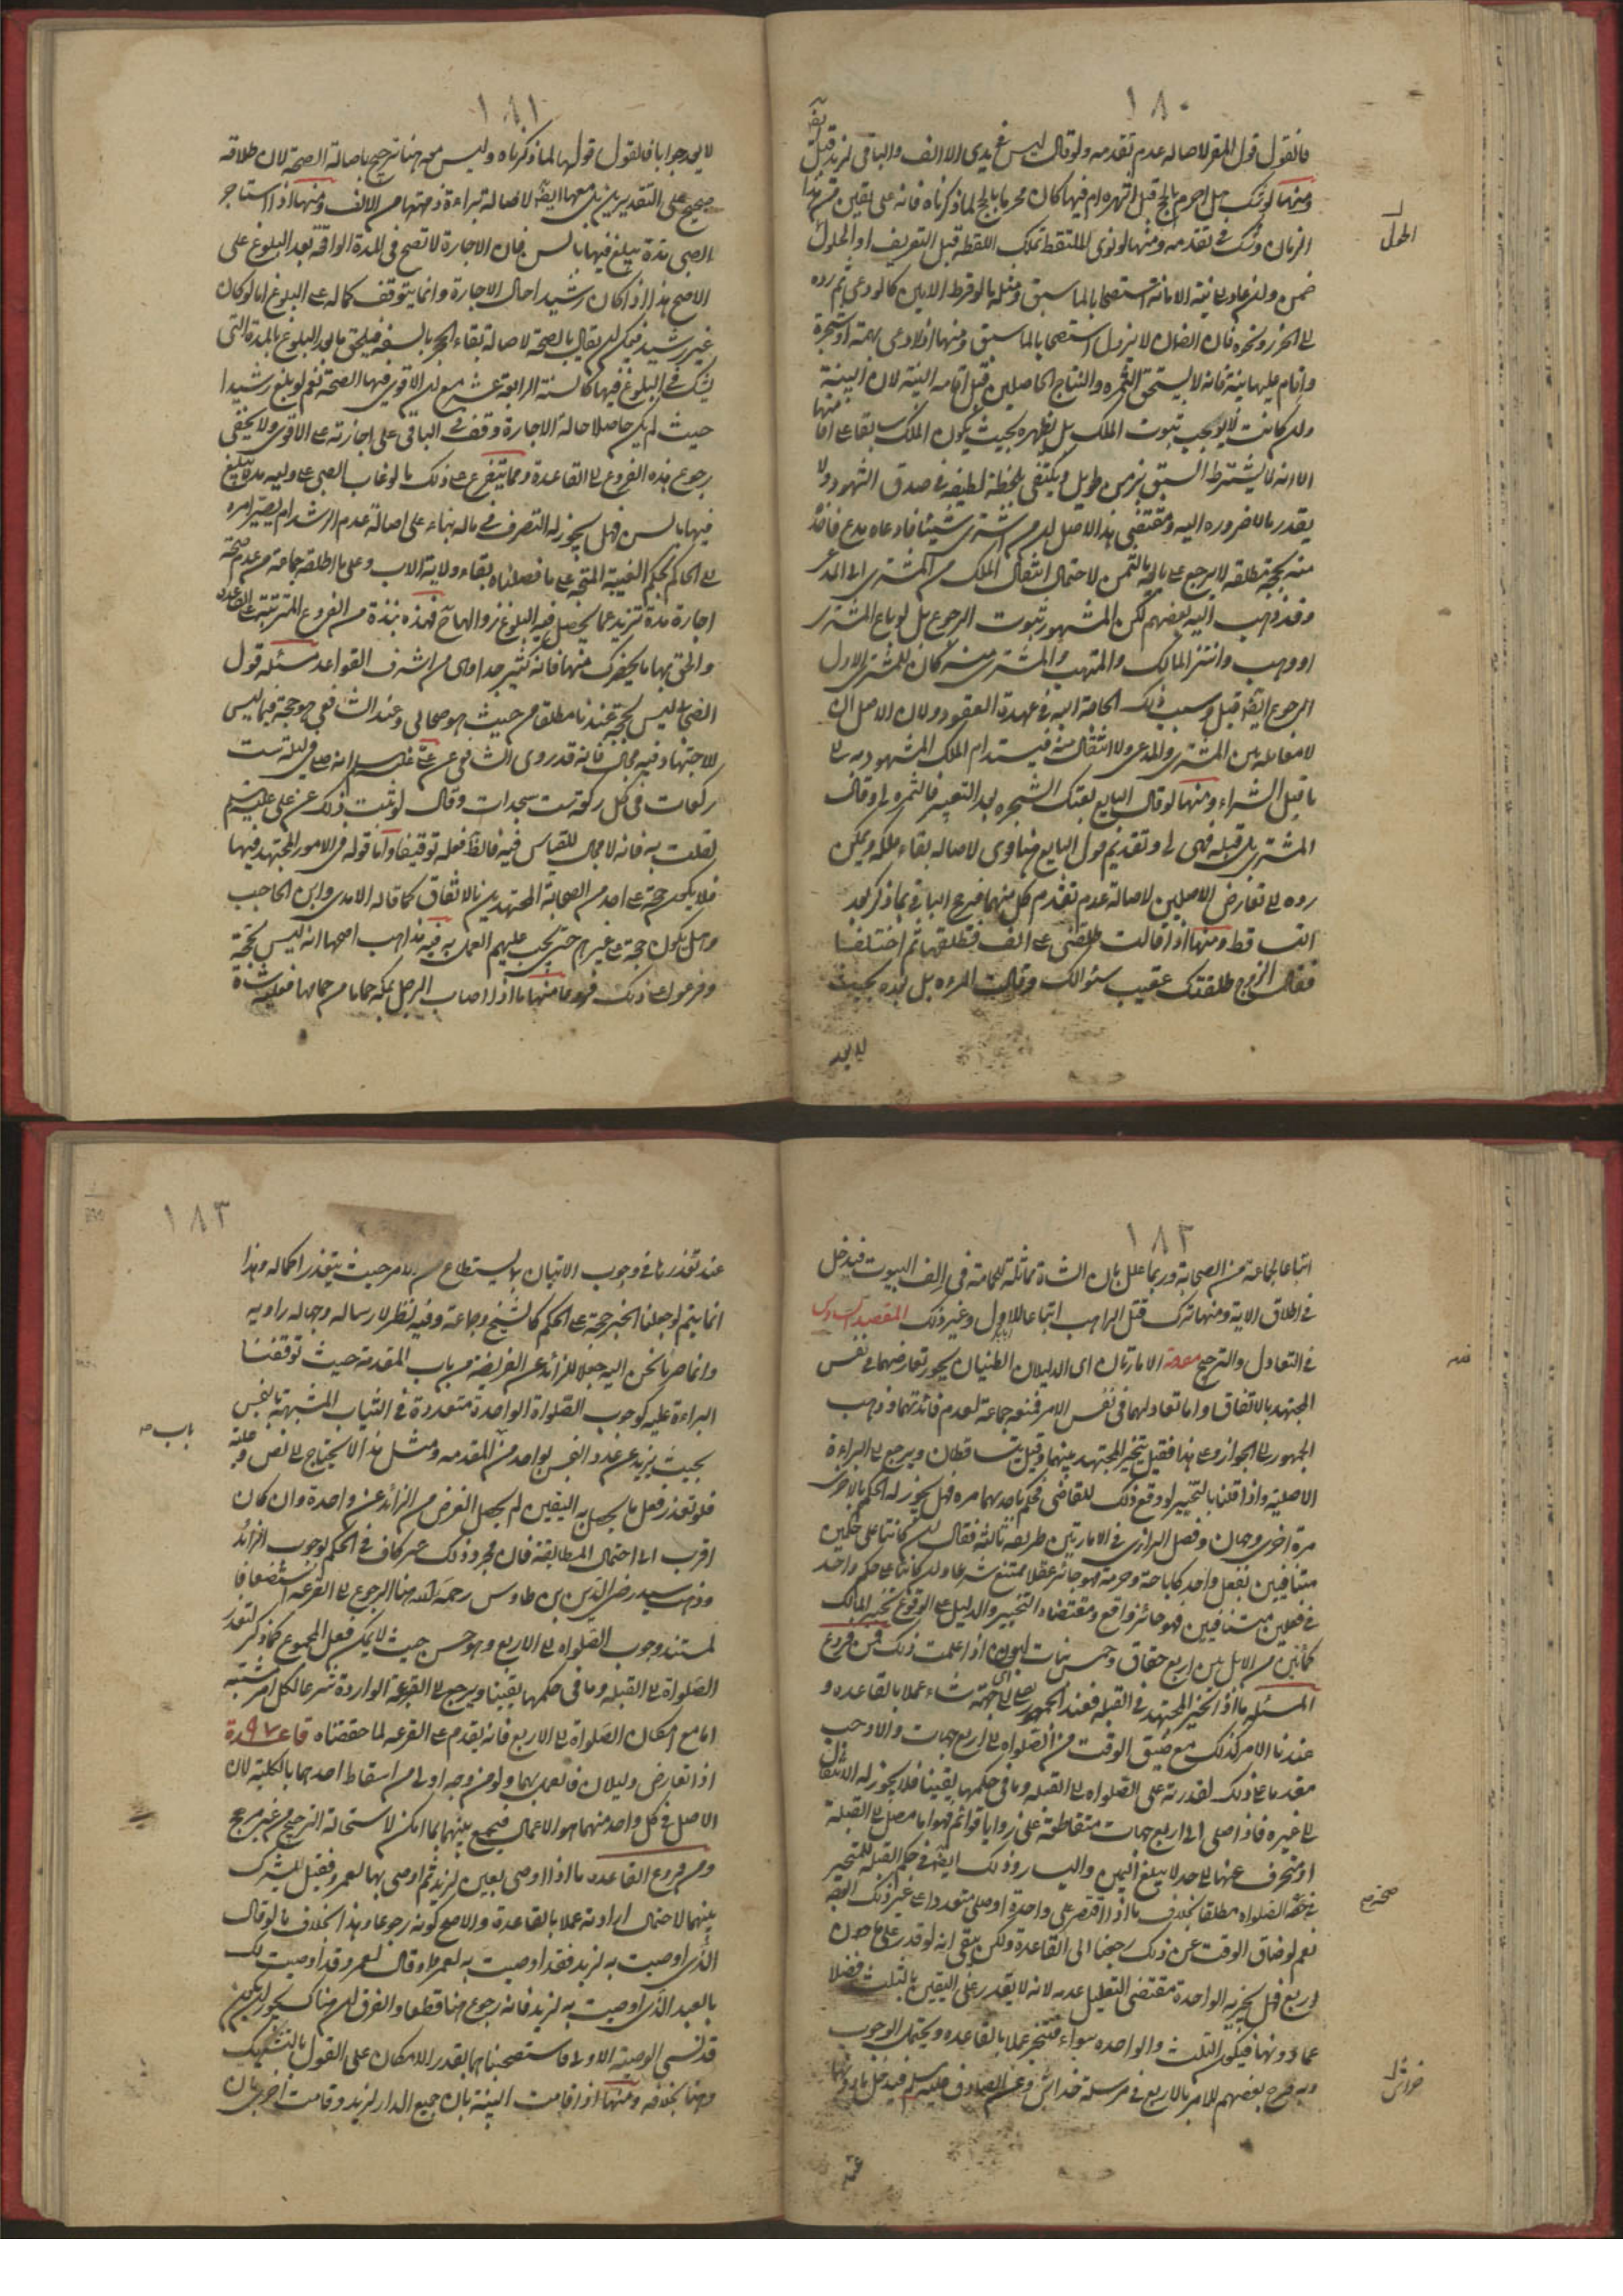 ١٨٠
فالقول قول المقر لاصالة عدم تقدمه ولو قال ليس في يدي الا الف والباقي لزيد قبل
ومنها لو شك هل احرم بالحج قبل اشهره ام فيها كان محرما بالحج لما ذكرناه فانه على يقين من هذا
الزمان وشك في تقدمه ومنها لو نوى الملتقط تملك اللقطة قبل التعريف او الحلول
ضمن ولم يعد بنية الامانة استصحابا لما سبق ومثله ما لو فرط الامين كالودعي ثم رده
الى الحرز ونحوه فان الضمان لا يزول استصحابا لما سبق ومنها اذا ادعى بهيمة او شجرة
واقام عليها بينة فانه لا يستحق الثمره والنتاج الحاصلين قبل اقامه البينة لان البينة
وان كانت لا توجب ثبوت الملك بل تظهره بحيث يكون الملك سابقا على اقامتها
الا انه لا يشترط السبق بزمن طويل ويكتفى بلحظة لطيفه في صدق الشهود ولا
يقدر ما لا ضروره اليه ومقتضى هذا الاصل ان من اشترى شيئا فادعاه مدع فاخذ
منه بحجة مطلقه لا يرجع على بايعه بالثمن لاحتمال انتقال الملك من المشتري الى المدعي
وقد ذهب اليه بعضهم لكن المشهور ثبوت الرجوع بل لو باع المشتري
او وهب وانتزع المالك والمتهب والمشتري منه كان للمشتري الاول
الرجوع ايضا قيل وسبب ذلك الحاجة اليه في عهدة العقود ولان الاصل ان
لا معاملة بين المشتري والمدعي ولا انتقال منه فيستدام الملك المشهود به الى
ما قبل الشراء ومنها لو قال البايع بعتك الشجره بعد التعبير فالثمره لي وقال
المشتري بل قبله فهي لي وتقديم قول البايع هنا قوى لاصالة بقاء ملكه ويمكن
رده الى تعارض الاصلين لاصالة عدم تقدم كل منهما فيرجح الباقي بما ذكر بعد
التساقط ومنها اذا قالت طلقني على الف فطلقها ثم اختلفا
فقال الزوج طلقتك عقيب سئوالك وقالت المراه بل بعده بحيث
لا يعد
١٨١
لا يعد جوابا فالقول قولها لما ذكرناه وليس معه هنا ترجيح باصالة الصحة لان طلاقه
صحيح على التقديرين بل معها ايضا لاصالة براءة ذمتها من الالف ومنها اذا استاجر
الصبي مدة يبلغ فيها بالسن فان الاجارة لا تصح في المدة الواقعة بعد البلوغ على
الاصح هذا اذا كان رشيدا حال الاجارة وانما يتوقف كماله على البلوغ اما لو كان
غير رشيد فيمكن ان يقال بالصحة لاصالة بقاء الحجر بالسفه فيلحق ما بعد البلوغ بالمدة التي
يشك في البلوغ فيها كالسنة الرابعة عشر مع ان الاقوى فيها الصحة نعم لو بلغ رشيدا
حيث لم يكن حاصلا حالة الاجارة وقف في الباقي على اجازته على الاقوى ولا يخفى
رجوع هذه الفروع الى القاعدة ومما يتفرع على ذلك ما لو غاب الصبي عن وليه مدة يبلغ
فيها بالسن فهل يجوز له التصرف في ماله بناء على اصالة عدم الرشد ام يصير امره
الى الحاكم بحكم الغيبة المتجه على ما فصلناه بقاء ولاية الاب وعلى ما اطلقه جماعة من عدم صحة
اجارة مدة تزيد عما يحصل فيه البلوغ زوالها فهذه نبذة من الفروع المترتبة على القاعدة
والحق بها ما يحضرك منها فانه كثير جدا وهي من اشرف القواعد مسئله قول
الصحابي ليس بحجة عندنا مطلقا من حيث هو صحابي وعند الشافعي هو حجة فيما ليس
للاجتهاد فيه مجال فانه قد روى الشافعي عن علي عليه السلام انه صلى في ليلة ست
ركعات في كل ركعة ست سجدات وقال لو ثبت ذلك عن علي عليه السلام
لقلت به فانه لا مجال للقياس فيه فالظ فعله توقيفا واما قوله في الامور المجتهد فيها
فلا يكون حجة على احد من الصحابة المجتهدين بالاتفاق كما قاله الامدي وابن الحاجب
وهل يكون حجة على غيرهم حتى يجب عليهم العمل به فيه مذاهب اصحها انه ليس بحجة
وفرعوا على ذلك فروعا منها ما اذا اصاب الرجل بمكة حماما من حمامها فعليه شاة
١٨٢
اتباعا لجماعة من الصحابة وربما علل بان الشاة مماثلة للحمامة في الف البيوت فيدخل
في اطلاق الاية ومنها ترك قتل الراهب اتباعا للاول وغير ذلك المقصد السادس
في التعادل والترجيح مقدمة الامارتان اى الدليلان الظنيان يجوز تعارضهما في نفس
المجتهد بالاتفاق واما تعادلهما في نفس الامر فمنعه جماعة لعدم فائدتهما وذهب
الجمهور الى الجواز وعلى هذا فقيل يتخير المجتهد بينهما وقيل يتساقطان ويرجع الى البراءة
الاصلية واذا قلنا بالتخيير لو وقع ذلك للقاضي فحكم باحدهما مره فهل يجوز له الحكم بالاخرى
مرة اخرى وجهان وفصل الرازي في الامارتين طريقه ثالثة فقال ان كانتا على حكمين
متنافيين بفعل واحد كاباحة وحرمة فهو جائز عقلا ممتنع شرعا وان كانتا على حكم واحد
في فعلين متنافيين فهو جائز واقع ومقتضاه التخيير والدليل على الوقوع تخيير المالك
كمأتين من الابل بين اربع حقاق وخمس بنات لبون اذا علمت ذلك فمن فروع
المسئله ما اذا تحير المجتهد في القبله فعند الجمهور يصلي الى اي جهة شاء عملا بالقاعده و
عندنا الامر كذلك مع ضيق الوقت من الصلواه الى اربع جهات والا وجب
مقدما على ذلك لقدرته على الصلواه الى القبله وما في حكمها يقينا فلا يجوز له الانتقال
الى غيره فاذا صلى الى اربع جهات متقاطعة على زوايا قوائم فهو اما مصل الى القبلة
او منحرف عنها الى حد لا يبلغ اليمين واليسار وذلك ايضا في حكم القبله للمتحير
في صحة الصلواه مطلقا بخلاف ما اذا اقتصر على واحدة او صلى متعددا على غير ذلك الوجه
نعم لو ضاق الوقت عن ذلك رجعنا الى القاعدة ولكن يبقى انه لو قدر على ما دون
اربع فهل يجزيه الواحدة مقتضى التعليل عدمه لانه لا يقدر على اليقين بالثلث فضلا
عما دونها فيكون الثلث والواحده سواء فيتخير عملا بالقاعده ويحتمل الوجوب
وبه صرح بعضهم للامر بالاربع في مرسلة خداش عن الصادق عليه السلام فيدخل ما دونها
١٨٣
عند تعذرها في وجوب الاتيان بما يستطاع من الامر حيث يتعذر اكماله وهذا
انما يتم لو جعلنا الخبر حجة على الحكم كالشيخ وجماعة وفيه نظر لارساله وجهالة راويه
وانما صرنا نحن اليه جعلا للزائد عن الفريضة من باب المقدمة حيث توقفنا
البراءة عليه كوجوب الصلواة الواحدة متعددة في الثياب المشتبهة بالنجس
بحيث يزيد عن عدد النجس بواحد من المقدمه ومثل هذا لا يحتاج الى نص
فلو تعذر فعل ما يحصل به اليقين لم يحصل الغرض من الزائد عن واحدة وان كان
اقرب الى احتمال المطابقة فان مجرد ذلك غير كاف في الحكم بوجوب الزائد
وذهب سيد رضي الدين بن طاوس رحمه الله هنا الرجوع الى القرعه استضعافا
لمستند وجوب الصلواه الى الاربع وهو حسن حيث لا يمكن فعل المجموع كما ذكر لتعذر
الصلواة الى القبله وما في حكمها يقينا ويرجع الى القرعة الواردة شرعا لكل امر مشتبه
اما مع امكان الصلواة الى الاربع فانه يقدم على القرعه لما حققناه قاعدة ٩٧
اذا تعارض دليلان فالعمل بهما ولو من وجه اولى من اسقاط احدهما بالكلية لان
الاصل في كل واحد منهما هو الاعمال فيجمع بينهما بما امكن لاستحالة الترجيح من غير مرجح
ومن فروع القاعده ما اذا اوصى بعين لزيد ثم اوصى بها لعمرو فقيل يشرك
بينهما لاحتمال ارادته عملا بالقاعدة والاصح كونه رجوعا وهذا بخلاف ما لو قال
الذي اوصيت به لزيد فقد اوصيت به لعمرو او قال لعمرو قد اوصيت لك
بالعبد الذي اوصيت به لزيد فانه رجوع هنا قطعا والفرق ان هناك يجوز ان يكون
قد نسي الوصية الاولى فاستصحبناها بقدر الامكان على القول بالتشريك
وهنا بخلافه ومنها اذا قامت البينة بان جميع الدار لزيد وقامت اخرى بان